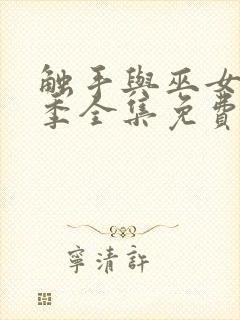 触手與巫女
季全集免費
寧清許